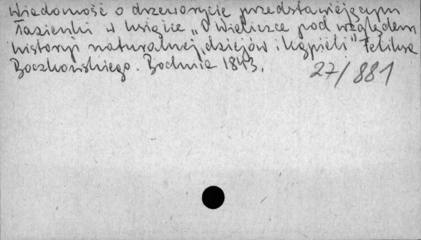 Wiadomość o drzeworycie przedstawiającym
Łazienki w książce „O Wieliczce pod względem
historyi naturalnej, dziejów i kąpieli" Feliksa
Boczkowskiego. Bochnia 1843.
27/881